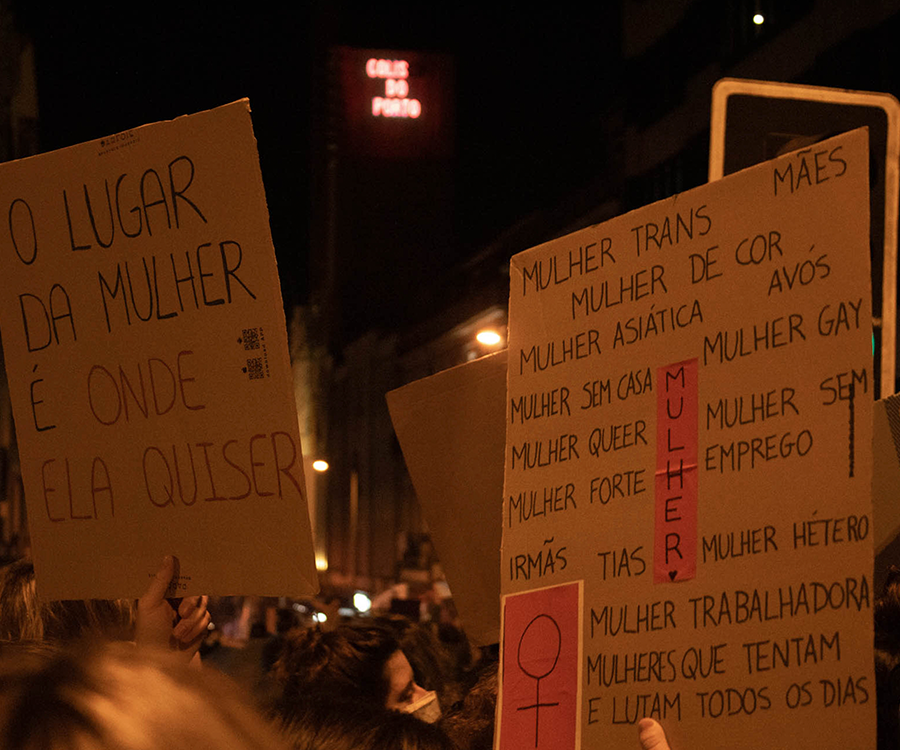 COLIS
DO
PORTO
O LUGAR
DA MULHER
É ONDE
ELA QUISER
MÃES
MULHER TRANS
MULHER DE COR
AVÓS
MULHER ASIÁTICA
MULHER GAY
MULHER SEM CASA
MULHER SEM
EMPREGO
MULHER QUEER
MULHER FORTE
MULHER
IRMÃS
TIAS
MULHER HÉTERO
MULHER TRABALHADORA
MULHERES QUE TENTAM
E LUTAM TODOS OS DIAS